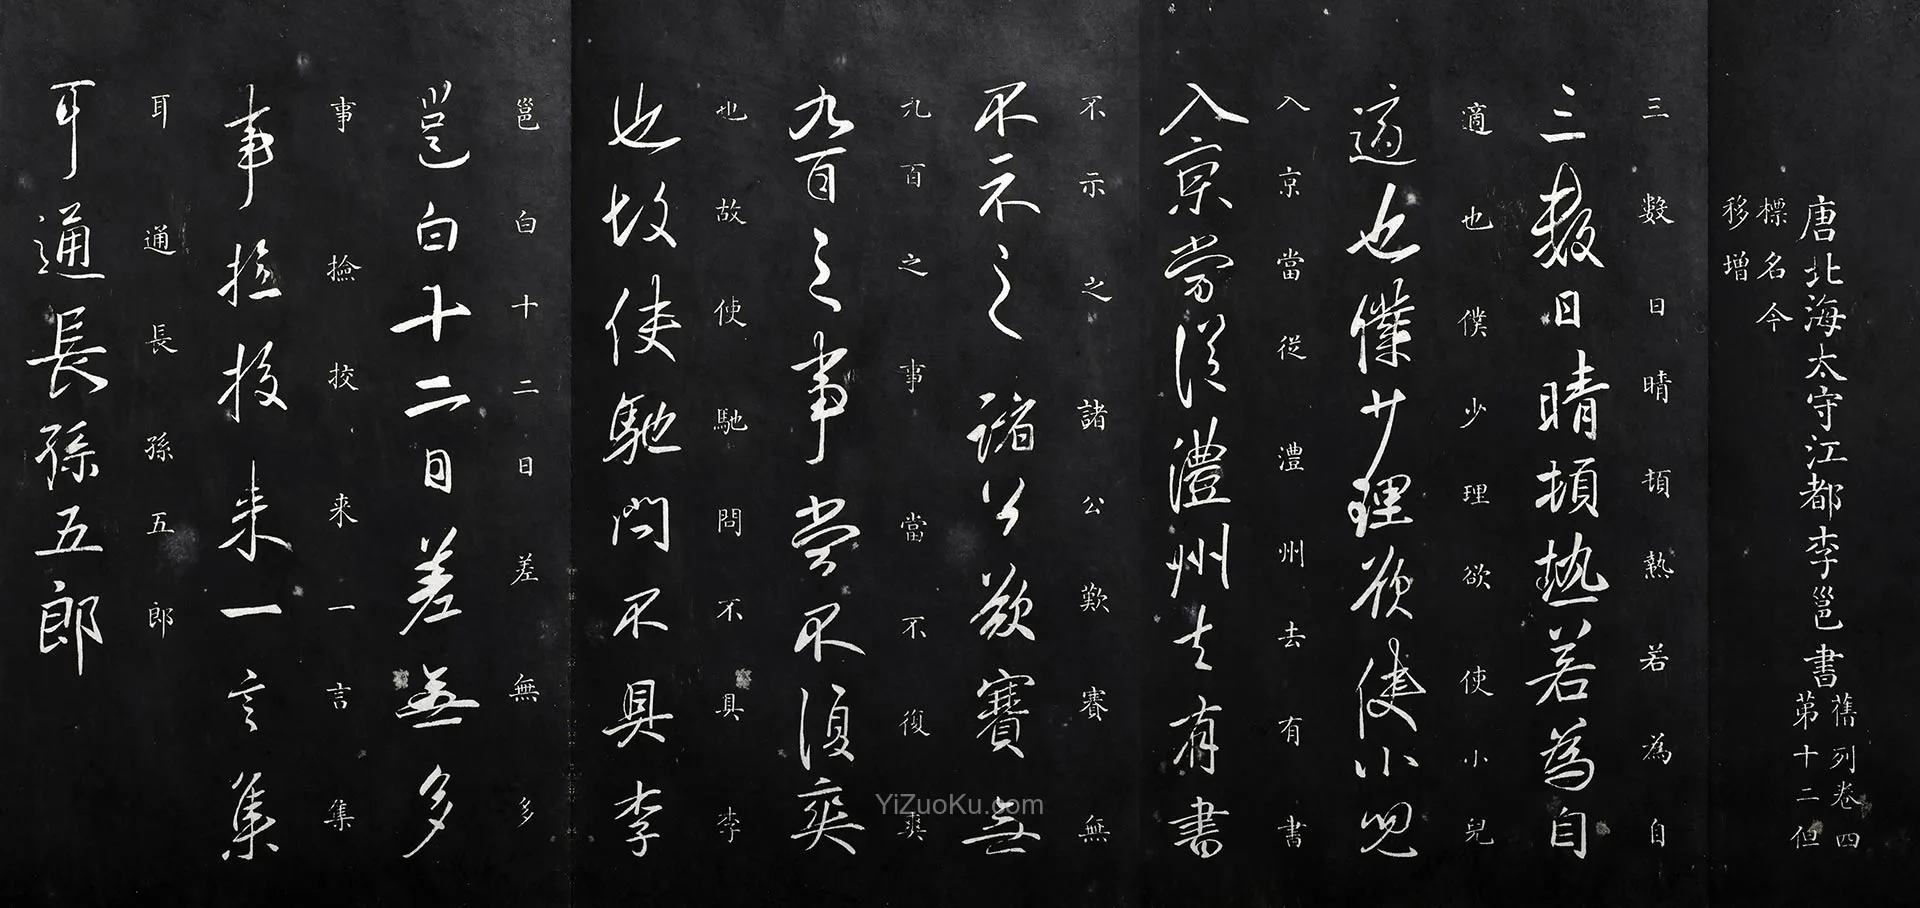 唐北海太守江都李邕書
舊列卷四
第十二但
標名今
移增
三數日晴頓熱若為自
三數日晴頓熱若為自
適也僕少理欲使小兒
適也僕少理欲使小兒
入京當從澧州去有書
入京當從澧州去有書
不示之諸公歎賽無
不示之諸公歎賽無
九百之事當不復爽
九百之事當不復爽
也故使馳問不具李
也故使馳問不具李
邕白十二日差無多
邕白十二日差無多
事撿挍来一言集
事撿挍来一言集
耳通長孫五郎
耳通長孫五郎
YiZuoKu.com